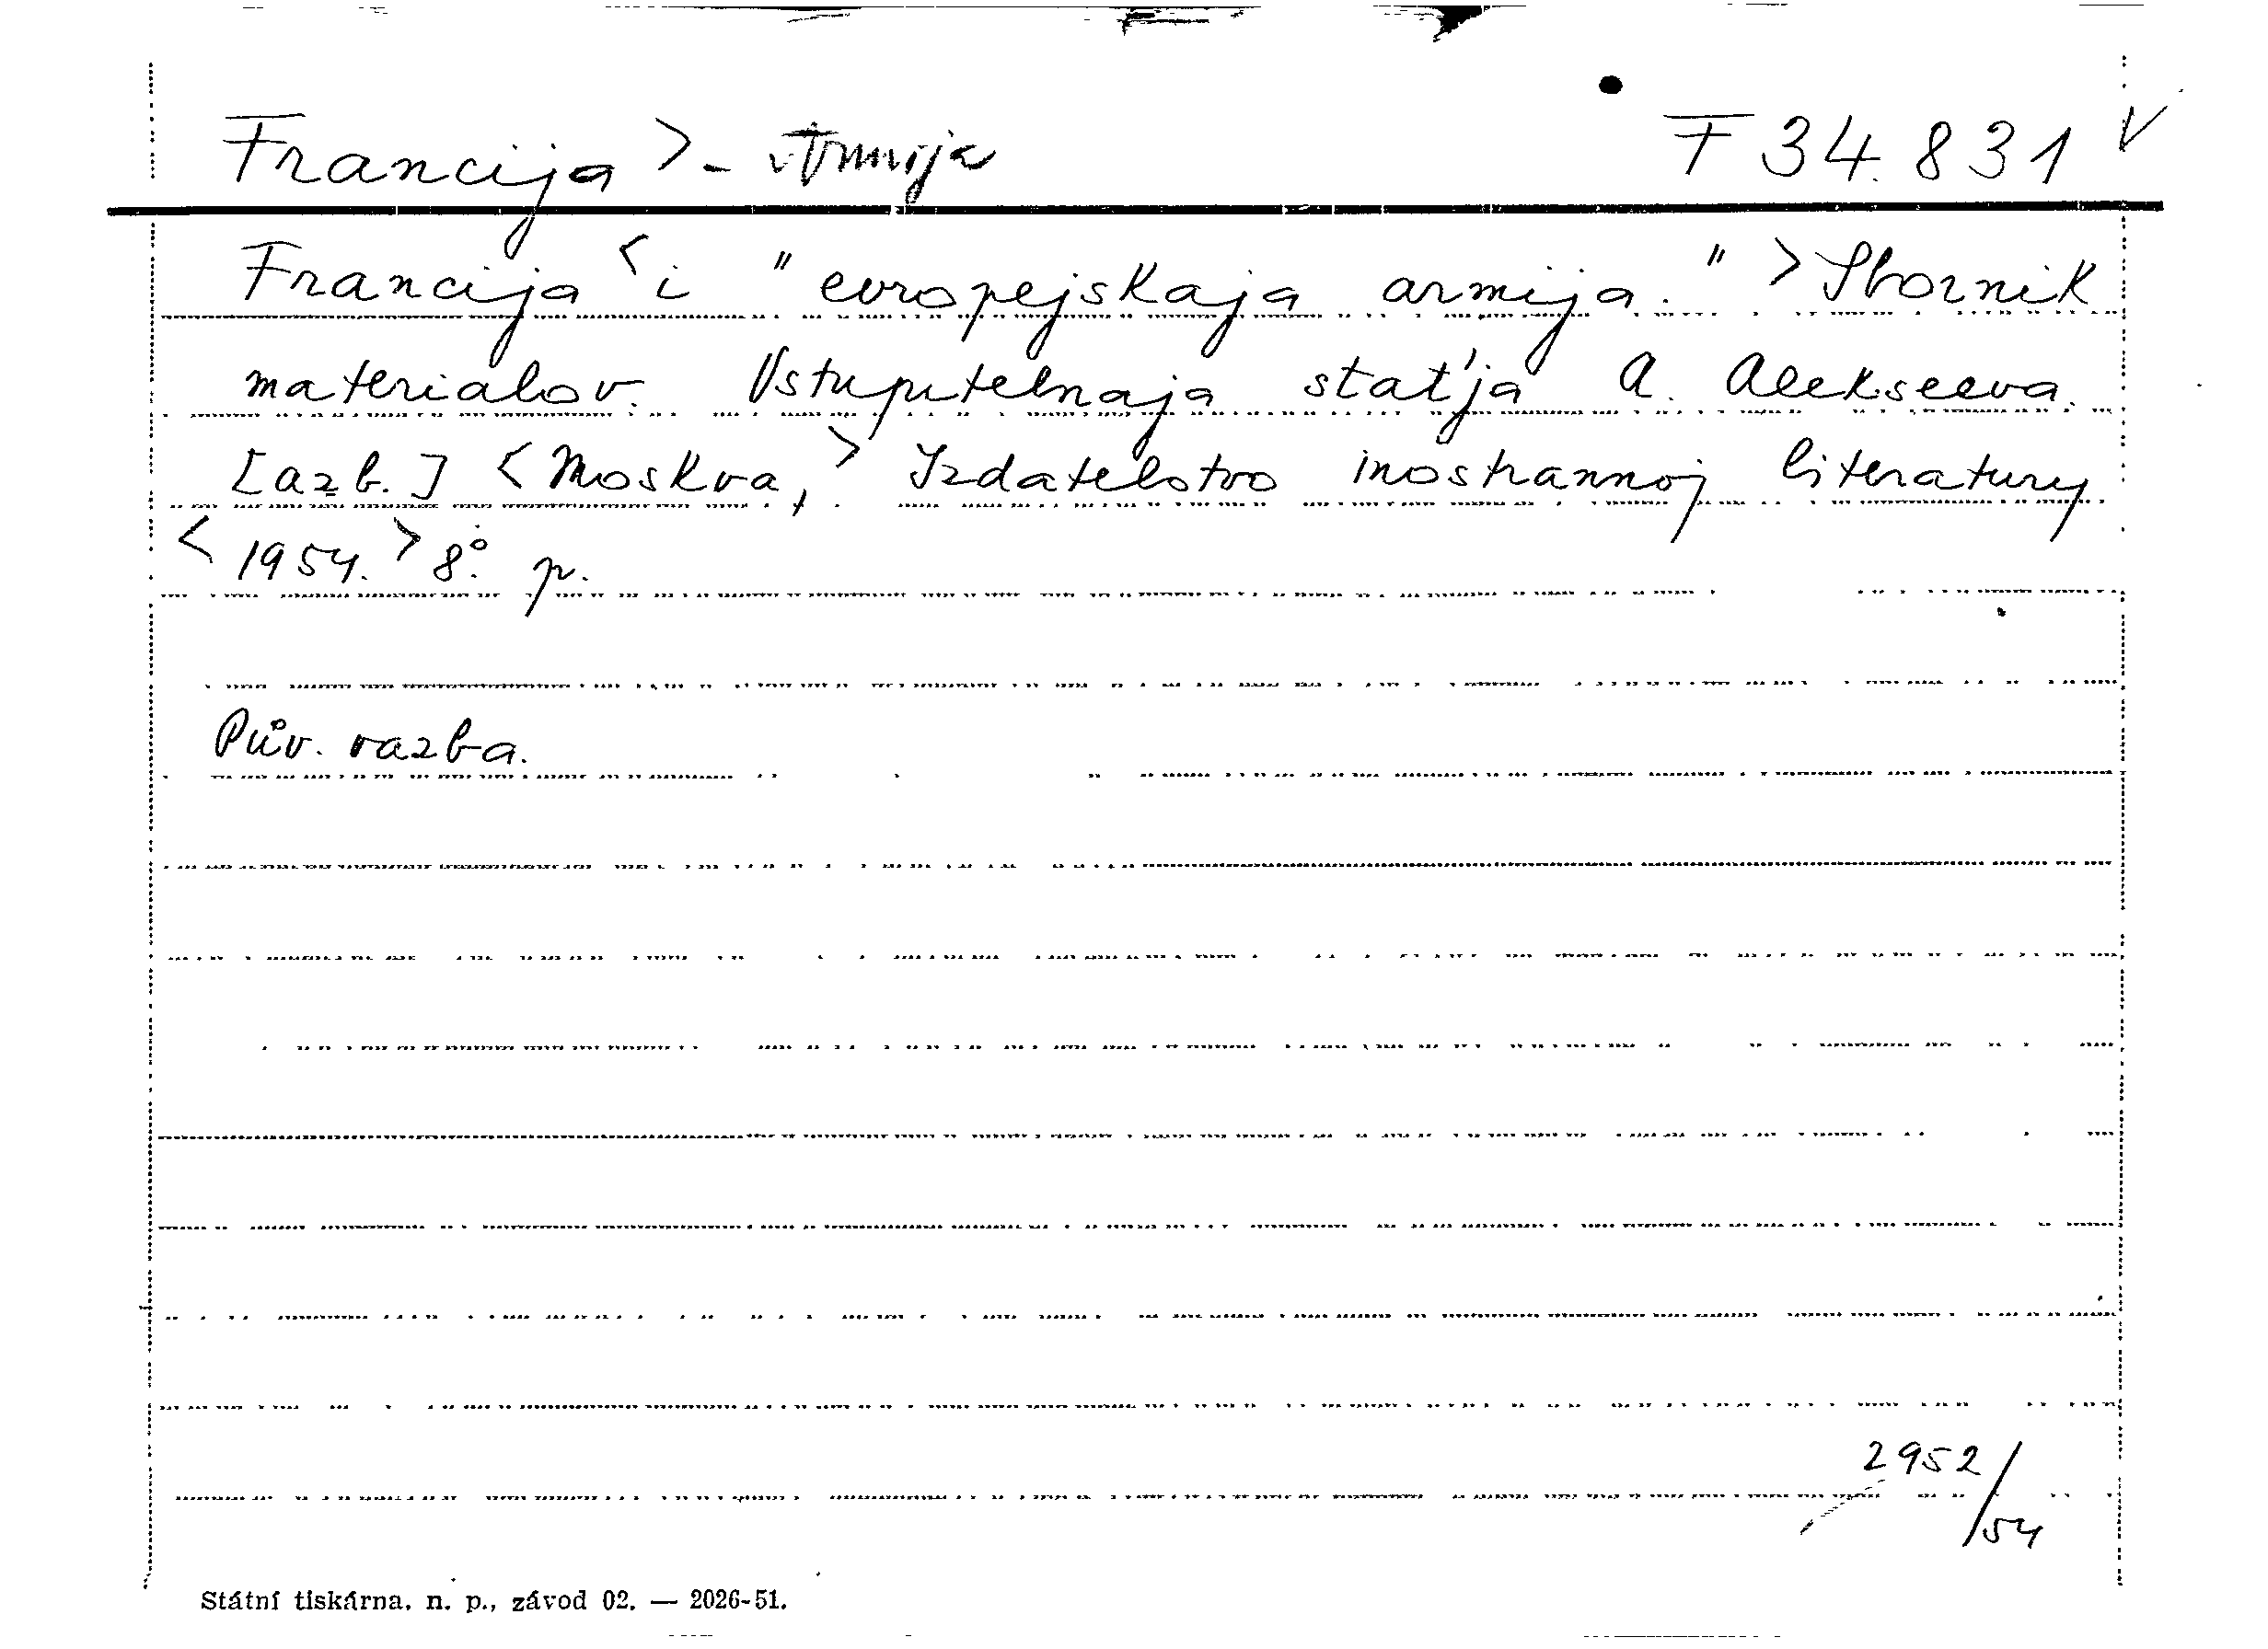 Francija > - Armija F 34.831 V
Francija < i "evropejskaja armija." > Sbornik
materialov. Vstupitelnaja stat'ja A. Alekseeva.
[azb.] < Moskva, > Izdatelstvo inostrannoj literatury
< 1954. > 8°. p.
Pův. vazba.
2952/54
Státní tiskárna, n. p., závod 02. — 2026-51.